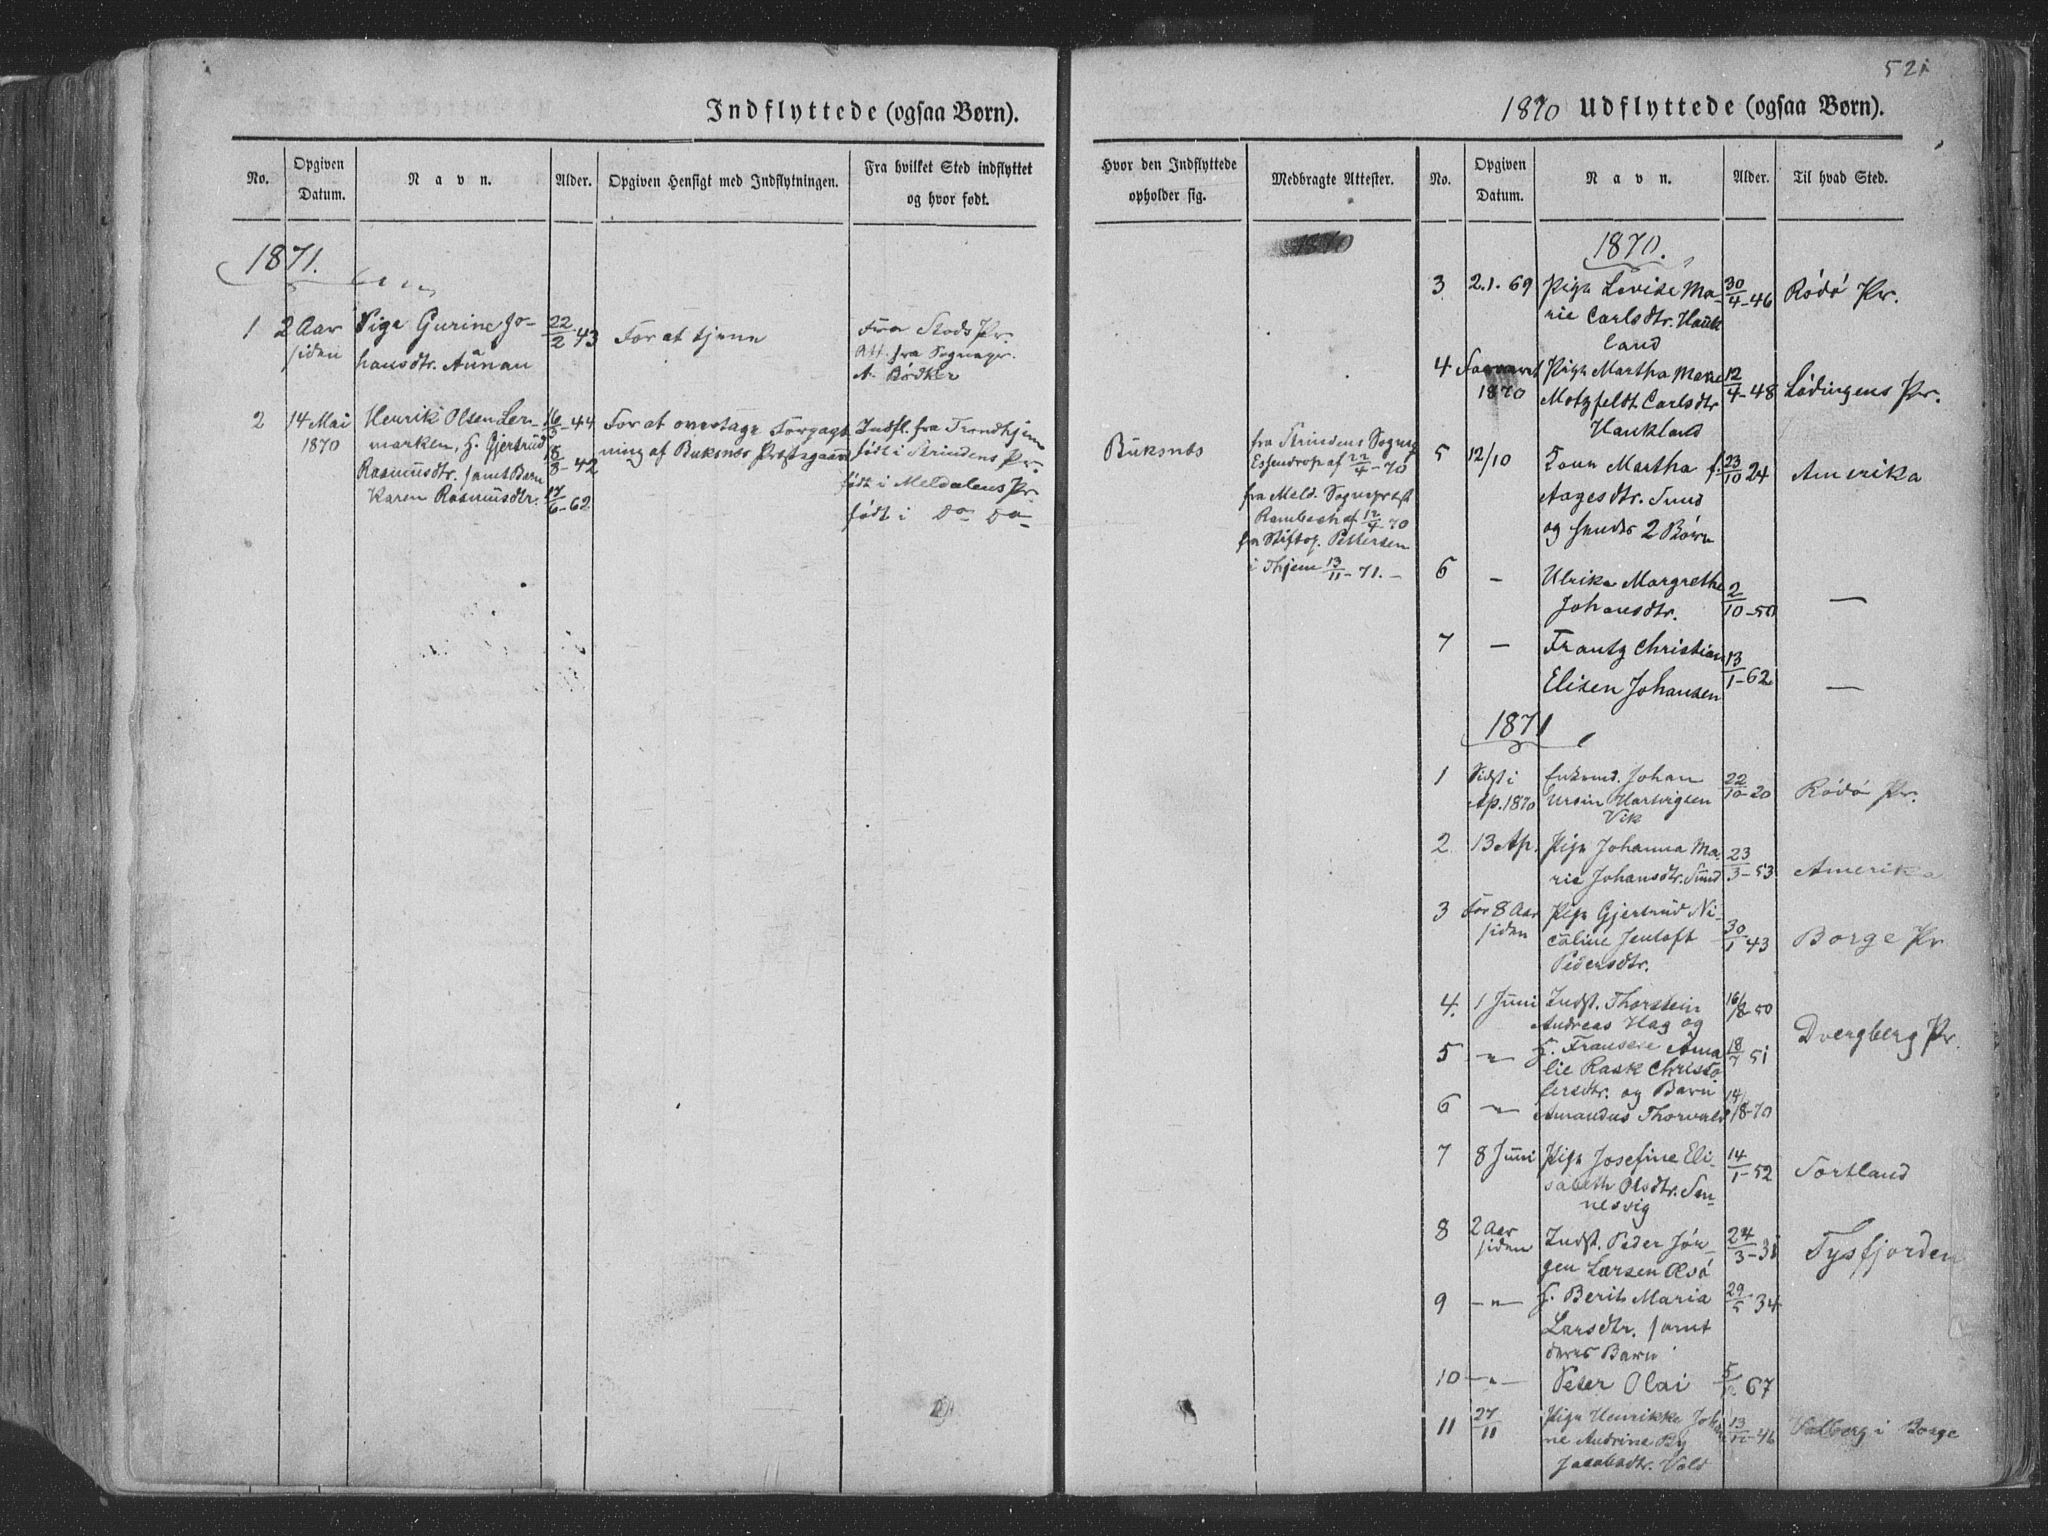 521
Indflyttede (ogsaa Børn).
No.
Opgiven Datum.
Navn.
Alder.
Opgiven Hensigt med Indflytningen.
Fra hvilket Sted indflyttet
og hvor født.
1871.
1 2 Aar Pige Gurine Jo- 22/2-43 For at tjene Fra Stods Pr.
siden hansdtr. Aünan Att. fra Sognepr.
A. Bödker
2 14 Mai Henrik Olsen Ler- 16/5-44 For at overtage Forpagt Indfl. fra Trondhjem
1870 marken, H. Gjertrüd 18/3-42 ning af Buksnes Præstegaard født i Strindens Pr.
Rasmüsdtr. samt Barn født i Meldalens Pr.
Karen Rasmüsdtr. 17/6-62 født i Do Do
1870 Udflyttede (ogsaa Børn).
Hvor den Indflyttede
opholder sig.
Medbragte Attester.
No.
Opgiven
Datum.
Navn.
Alder.
Til hvad Sted.
1870
Buksnes
fra Strindens Sognepr
Essendrop af 22/4-70
fra Meld. Sognepræst
Rambech af 12/4-70
fra Stiftsp. Pettersen
i Thjem 13/11-71.-
1870.
3 2.1.69 Pige Lovise Ma- 30/4-46 Rödö Pr.
rie Carlsdtr. Hauk
land
4 1870 Pige Martha 12/4-48 Lødingens Pr.
Motzfeldt Carlsdtr
Haukland
5 12/10 Martha f. 23/10 24 Amerika
Aagesdtr. Sund
og hendes 2 Børn
6 - Ulrika Margrethe 2/10-50 -
Johansdtr.
7 - Frantz Christian 13/1-62
Elisen Johansen -
1871
1 Sidst i Enkemd. Johan 22/10-20 Rödö Pr.
Ap. 1870 Ursin Hartvigsen
Vik
2 13 Ap. Pige Johanna Ma- 23/3-53 Amerika
rie Johansdtr. Sünd
3 For 8 Aar Pige Gjertrüd Ni- 30/1 43 Borge Pr
siden coline Jentoft
Pedersdtr.
4. 1 Juni Indst. Thorstein 16/8-50
Andreas Hag og Dvergberg Pr.
5 -"- H. Fransese Ama 18/7 51
lie Rask Christo
fersdtr. og Barn
6 -"- Amandus Thorvald 14/8-70
7 8 Juni Pige Josefine Eli- 14/1-52 Sortland
sabeth Olsdtr. Sen-
nesvig
8 2 Aar Indst. Peder Jør- 24/3-31 Tysfjorden
siden gen Larsen Olsö
9 -"- H. Berit Maria 29/5 34
Larsdtr. samt
deres Barn
10 -"- Peter Olai 67
11 27/11 Pige Henrikke Joha 46 Valberg i Borge
ne Andrine By
Jacobsdtr. Vold